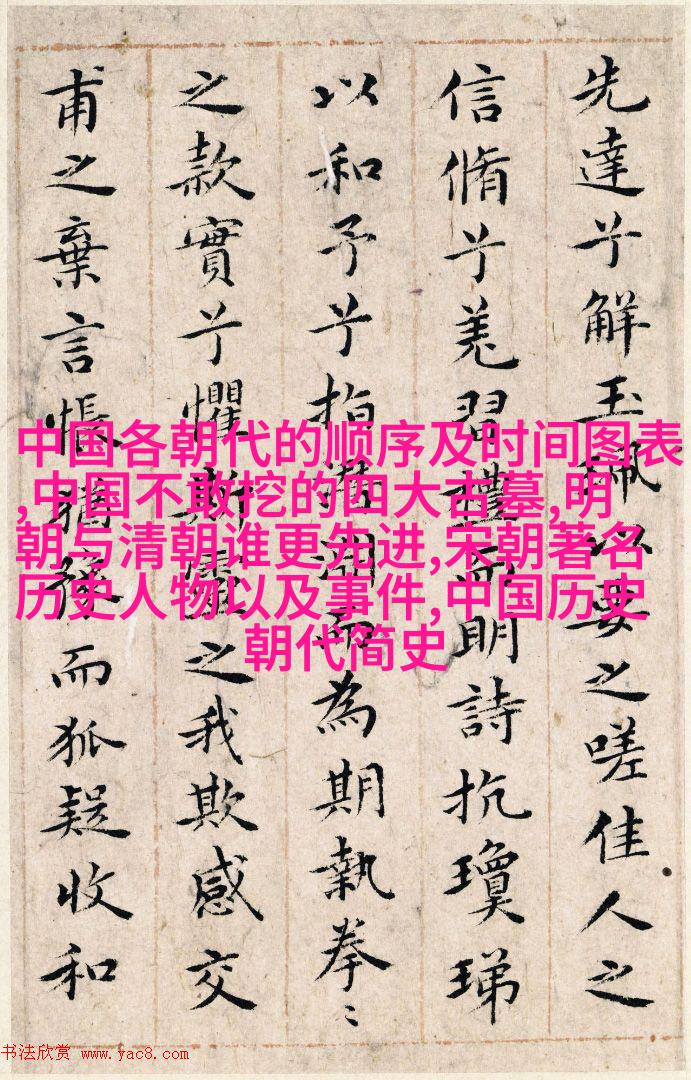 先達兮解玉珮以要之嗟佳人之
信脩兮羌習禮而明詩抗瓊珶
以和予兮指潛淵而為期執拳〻
之款實兮懼斯靈之我欺感交
甫之棄言悵猶豫而狐疑收和
中国各朝代的顺序及时间图表
,中国不敢挖的四大古墓,明
朝与清朝谁更先进,宋朝著名
历史人物以及事件,中国历史
朝代简史
书法欣赏 www.yac8.com